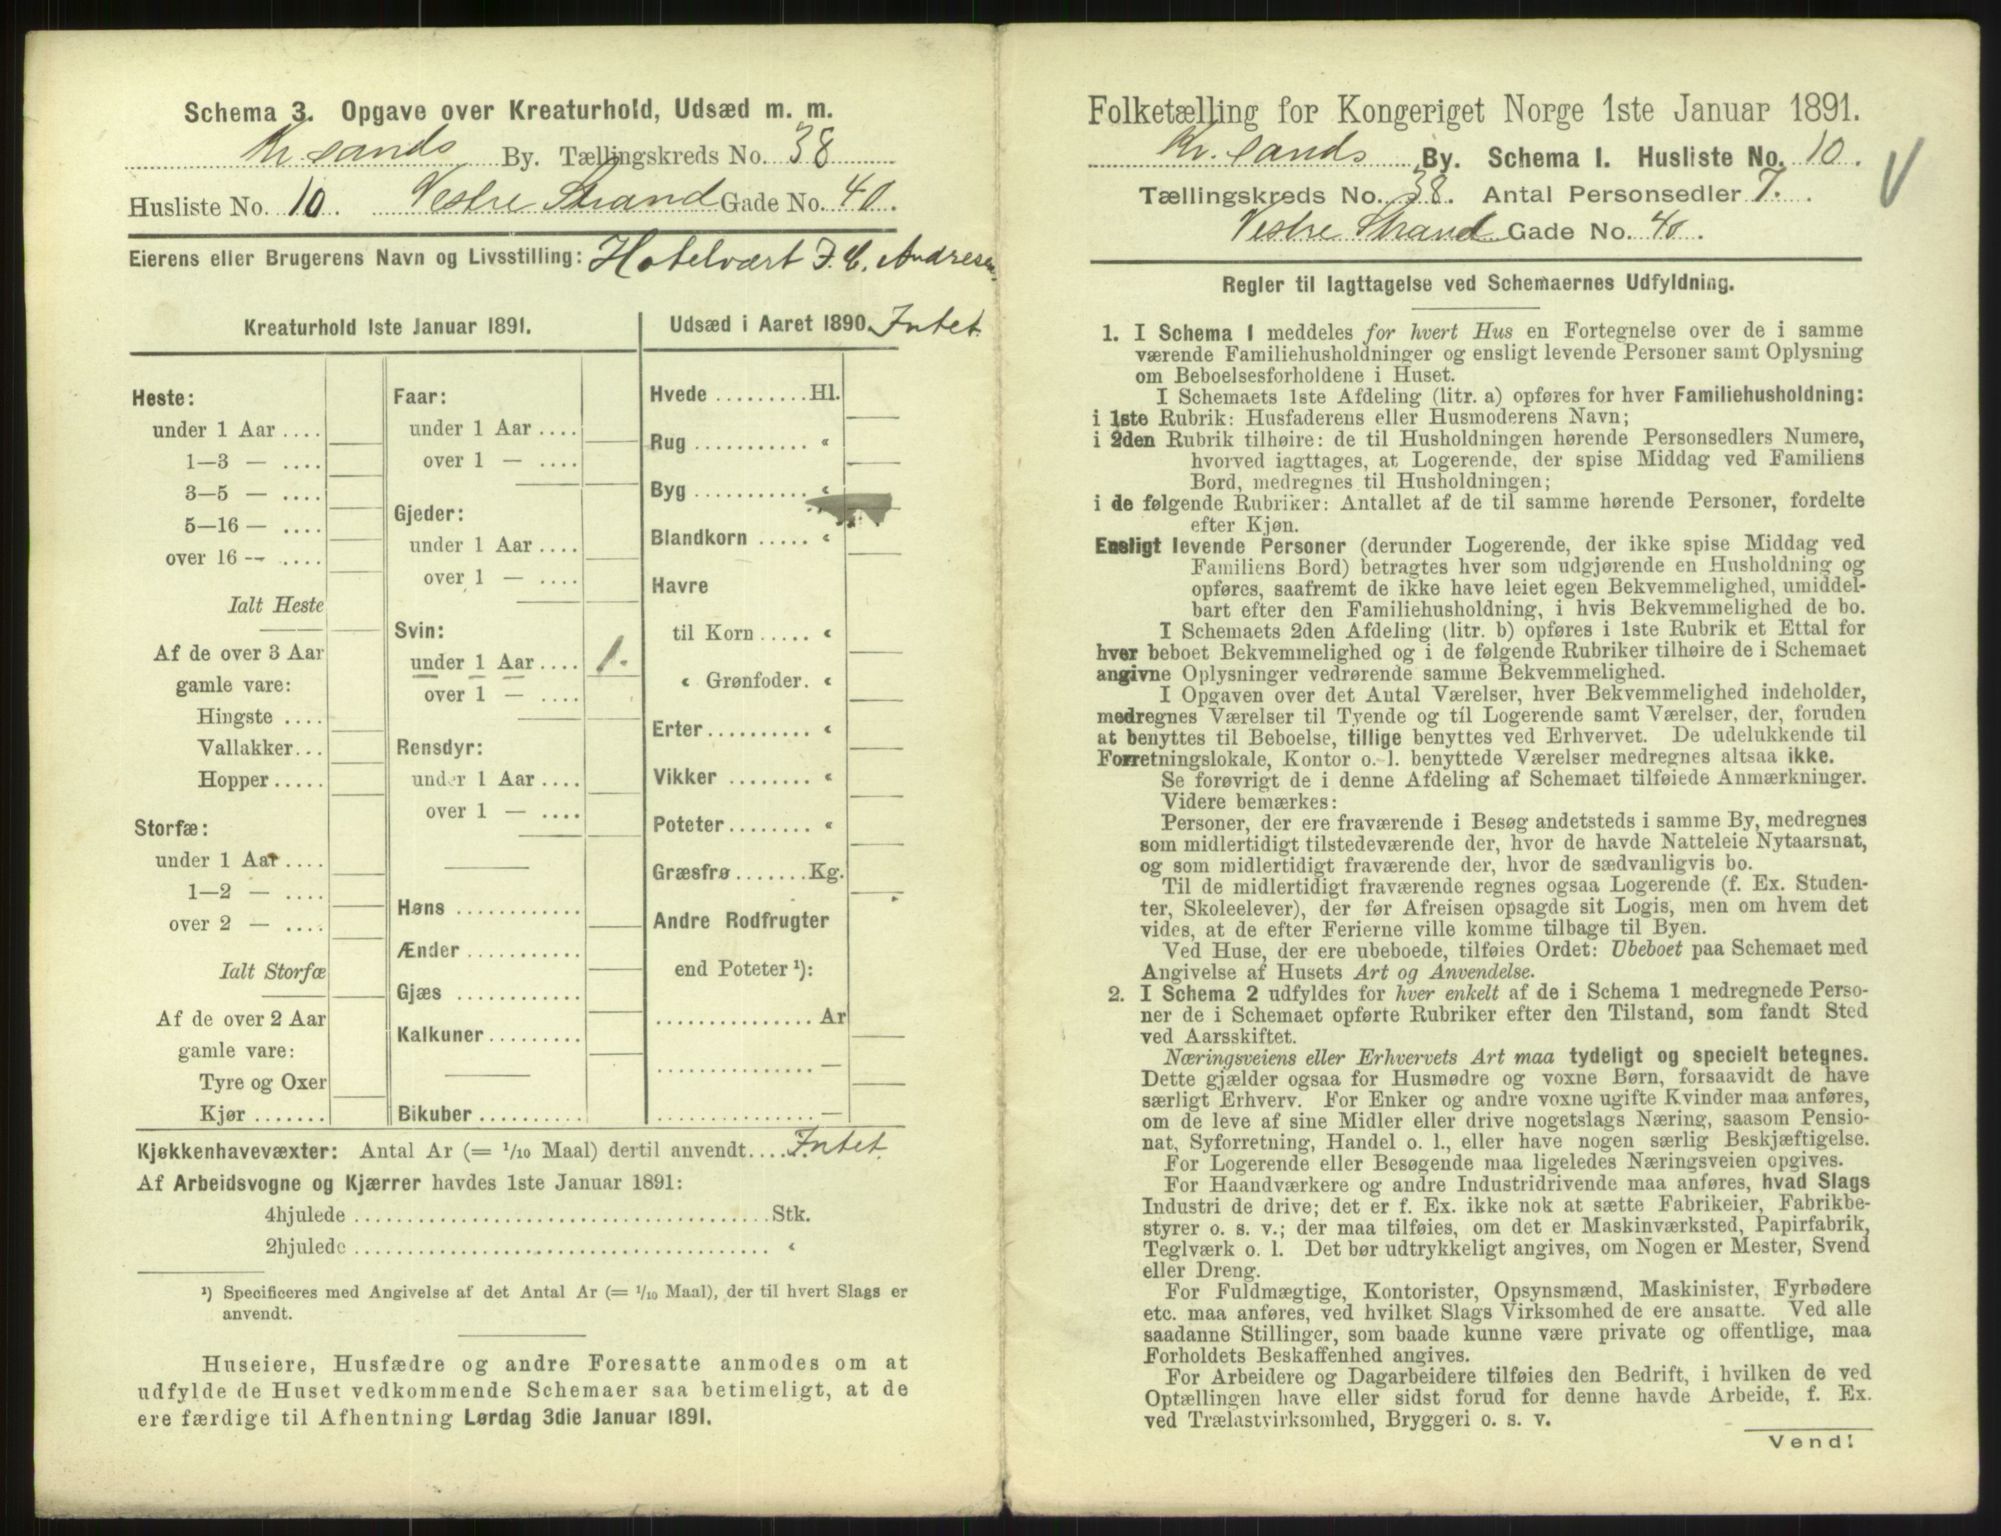 Schema 3. Opgave over Kreaturhold, Udsæd m. m.
Kr. sands By. Tællingskreds No. 38
Husliste No. 10. Vestre Strand Gade No. 40.
Eierens eller Brugerens Navn og Livsstilling: Hotelvært F. C. Andresen
Kreaturhold 1ste Januar 1891.
Heste:
under 1 Aar ....
1—3 — ....
3—5 — ....
5—16 — ....
over 16 — ....
Ialt Heste
Af de over 3 Aar
gamle vare:
Hingste ....
Vallakker...
Hopper.....
Storfæ:
under 1 Aar....
1—2 — ....
over 2 — ....
Ialt Storfæ
Af de over 2 Aar
gamle vare:
Tyre og Oxer
Kjør .......
Faar:
under 1 Aar ....
over 1 — ....
Gjeder:
under 1 Aar....
over 1 — ....
Svin:
under 1 Aar.... 1.
over 1 — ....
Rensdyr:
under 1 Aar....
over 1 — ....
Høns ............
Ænder...........
Gjæs ............
Kalkuner.........
Bikuber..........
Udsæd i Aaret 1890. Intet.
Hvede .........Hl.
Rug ........... «
Byg ........... «
Blandkorn ..... «
Havre
til Korn ..... «
« Grønfoder. «
Erter.......... «
Vikker ........ «
Poteter........ «
Græsfrø .......Kg.
Andre Rodfrugter
end Poteter ¹):
............... Ar
............... —
............... —
Kjøkkenhavevæxter: Antal Ar (= 1/10 Maal) dertil anvendt.... Intet.
Af Arbeidsvogne og Kjærrer havdes 1ste Januar 1891:
4hjulede .......................................Stk.
2hjulede ....................................... «
¹) Specificeres med Angivelse af det Antal Ar (= 1/10 Maal), der til hvert Slags er
anvendt.
Huseiere, Husfædre og andre Foresatte anmodes om at
udfylde de Huset vedkommende Schemaer saa betimeligt, at de
ere færdige til Afhentning Lørdag 3die Januar 1891.
Folketælling for Kongeriget Norge 1ste Januar 1891.
Kr. sands By. Schema 1. Husliste No. 10.
Tællingskreds No. 38. Antal Personsedler 7.
Vestre Strand Gade No. 40.
Regler til Iagttagelse ved Schemaernes Udfyldning.
1. I Schema 1 meddeles for hvert Hus en Fortegnelse over de i samme
værende Familiehusholdninger og ensligt levende Personer samt Oplysning
om Beboelsesforholdene i Huset.
I Schemaets 1ste Afdeling (litr. a) opføres for hver Familiehusholdning:
i 1ste Rubrik: Husfaderens eller Husmoderens Navn;
i 2den Rubrik tilhøire: de til Husholdningen hørende Personsedlers Numere,
hvorved iagttages, at Logerende, der spise Middag ved Familiens
Bord, medregnes til Husholdningen;
i de følgende Rubriker: Antallet af de til samme hørende Personer, fordelte
efter Kjøn.
Ensligt levende Personer (derunder Logerende, der ikke spise Middag ved
Familiens Bord) betragtes hver som udgjørende en Husholdning og
opføres, saafremt de ikke have leiet egen Bekvemmelighed, umiddel-
bart efter den Familiehusholdning, i hvis Bekvemmelighed de bo.
I Schemaets 2den Afdeling (litr. b) opføres i 1ste Rubrik et Ettal for
hver beboet Bekvemmelighed og i de følgende Rubriker tilhøire de i Schemaet
angivne Oplysninger vedrørende samme Bekvemmelighed.
I Opgaven over det Antal Værelser, hver Bekvemmelighed indeholder,
medregnes Værelser til Tyende og til Logerende samt Værelser, der, foruden
at benyttes til Beboelse, tillige benyttes ved Erhvervet. De udelukkende til
Forretningslokale, Kontor o. l. benyttede Værelser medregnes altsaa ikke.
Se forøvrigt de i denne Afdeling af Schemaet tilføiede Anmærkninger.
Videre bemærkes:
Personer, der ere fraværende i Besøg andetsteds i samme By, medregnes
som midlertidigt tilstedeværende der, hvor de havde Natteleie Nytaarsnat,
og som midlertidigt fraværende der, hvor de sædvanligvis bo.
Til de midlertidigt fraværende regnes ogsaa Logerende (f. Ex. Studen-
ter, Skoleelever), der før Afreisen opsagde sit Logis, men om hvem det
vides, at de efter Ferierne ville komme tilbage til Byen.
Ved Huse, der ere ubeboede, tilføies Ordet: Ubeboet paa Schemaet med
Angivelse af Husets Art og Anvendelse.
2. I Schema 2 udfyldes for hver enkelt af de i Schema 1 medregnede Perso-
ner de i Schemaet opførte Rubriker efter den Tilstand, som fandt Sted
ved Aarsskiftet.
Næringsveiens eller Erhvervets Art maa tydeligt og specielt betegnes.
Dette gjælder ogsaa for Husmødre og voxne Børn, forsaavidt de have
særligt Erhverv. For Enker og andre voxne ugifte Kvinder maa anføres,
om de leve af sine Midler eller drive nogetslags Næring, saasom Pensio-
nat, Syforretning, Handel o. l., eller have nogen særlig Beskjæftigelse.
For Logerende eller Besøgende maa ligeledes Næringsveien opgives.
For Haandværkere og andre Industridrivende maa anføres, hvad Slags
Industri de drive; det er f. Ex. ikke nok at sætte Fabrikeier, Fabrikbe-
styrer o. s. v.; der maa tilføies, om det er Maskinværksted, Papirfabrik,
Teglværk o. l. Det bør udtrykkeligt angives, om Nogen er Mester, Svend
eller Dreng.
For Fuldmægtige, Kontorister, Opsynsmænd, Maskinister, Fyrbødere
etc. maa anføres, ved hvilket Slags Virksomhed de ere ansatte. Ved alle
saadanne Stillinger, som baade kunne være private og offentlige, maa
Forholdets Beskaffenhed angives.
For Arbeidere og Dagarbeidere tilføies den Bedrift, i hvilken de ved
Optællingen have eller sidst forud for denne havde Arbeide, f. Ex.
ved Trælastvirksomhed, Bryggeri o. s. v.
Vend!